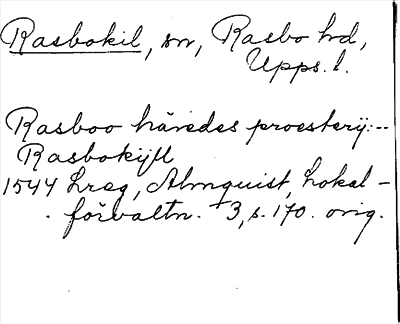 Rasbokil, sn, Rasbo hd,
Upps. l.
Rasboo häredes proesterij:--
Rasbokijll
1544 Lreg, Almquist, Lokal-
förvaltn. 3, s. 170. orig.